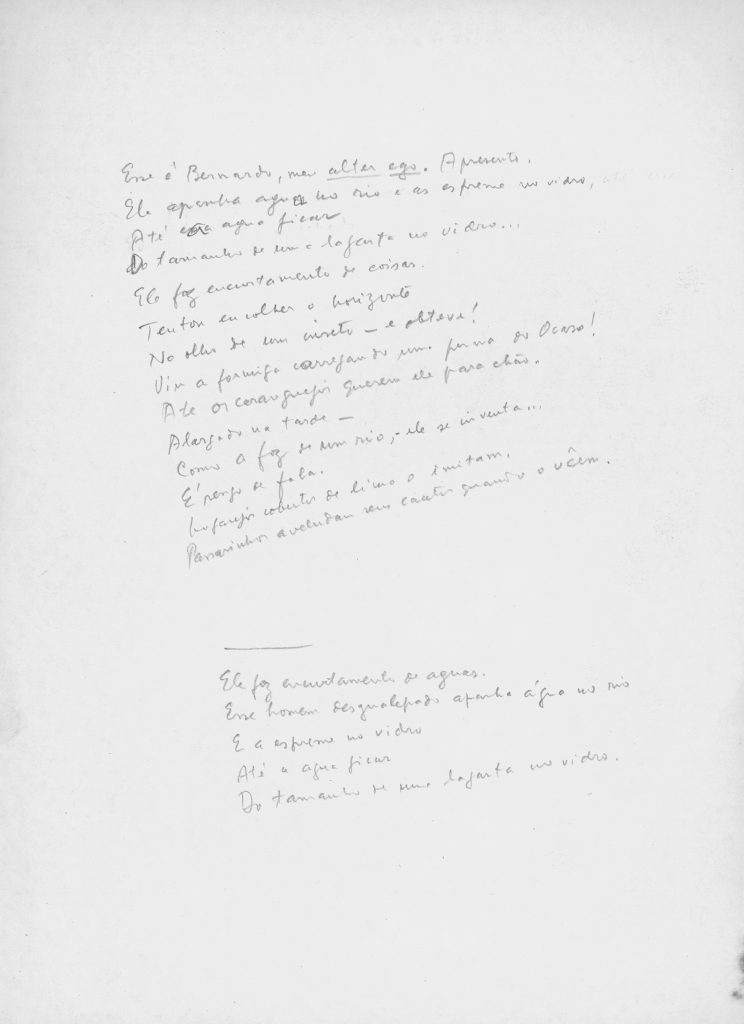 Esse é Bernardo, meu alter ego. Apresento.
Ele apanha agua no rio e as espreme no vidro, até
Até a agua ficar
Do tamanho de uma lagarta no vidro...
Ele faz encurtamento de coisas.
Tentou encolher o horizonte
No olho de um inseto — e obteve!
Viu a formiga carregando uma perna do Ocaso!
Até os caranguejos querem ele para chão.
Alargado na tarde —
Como a foz de um rio, — ele se inventa...
É rengo de fala.
Lugarejos cobertos de limo o imitam.
Passarinhos aveludam seus cantos quando o vêem.
Ele faz encurtamento de aguas.
Esse homem desgualepado apanha água no rio
E a espreme no vidro
Até a agua ficar
Do tamanho de uma lagarta no vidro.